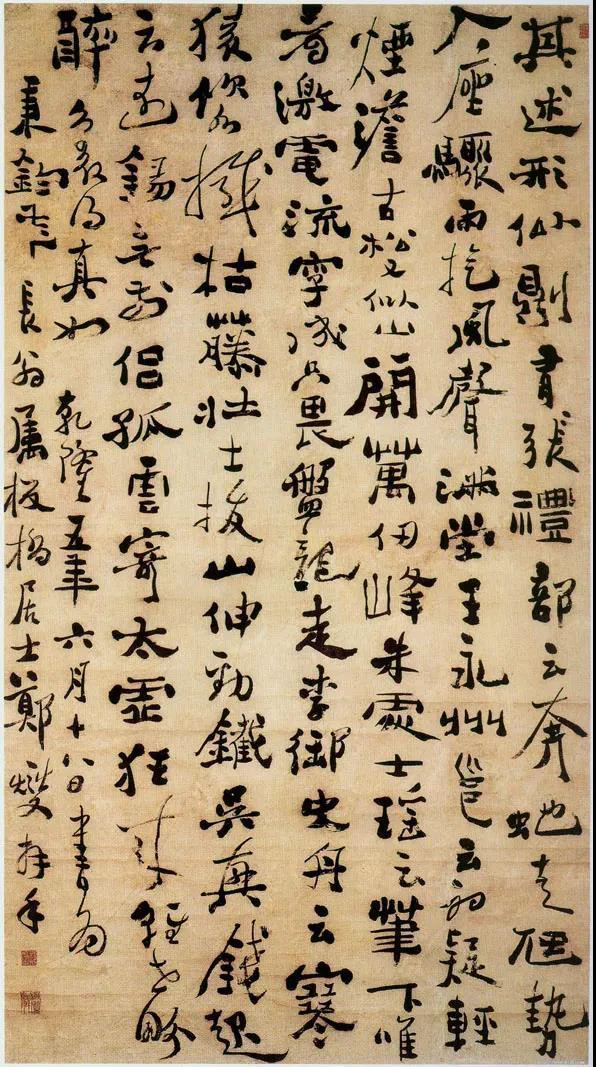 其述形似則有張禮部云奔虵走虺勢
入座驟雨旋風聲滿堂王永州邕云初疑輕
煙澹古松又似山開萬仞峰朱處士瑤云筆下唯
看激電流字成只畏盤龍走李御史舟云寒
猿飲水撼枯藤壯士拔山伸勁鐵吳興錢起
云遠錫無前侶孤雲寄太虛狂來輕世界
醉裏得真如 乾隆五年六月十八日書為
秉鈞老長翁屬板橋居士鄭燮